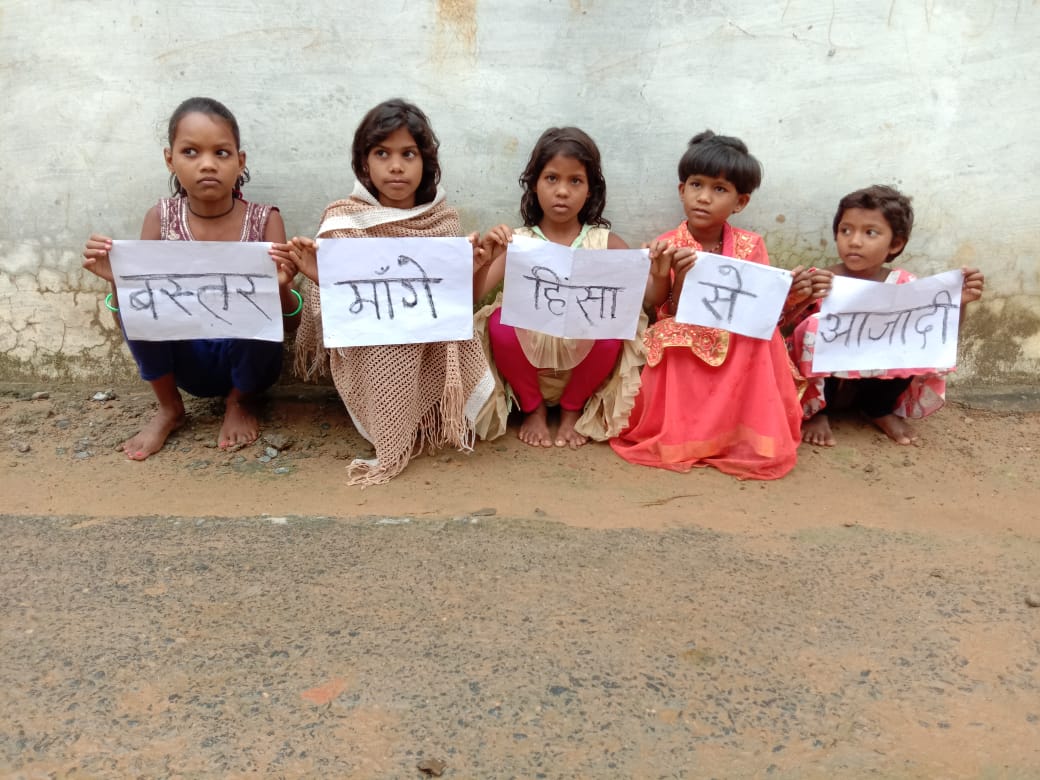 बस्तर माँगे हिंसा से आजादी